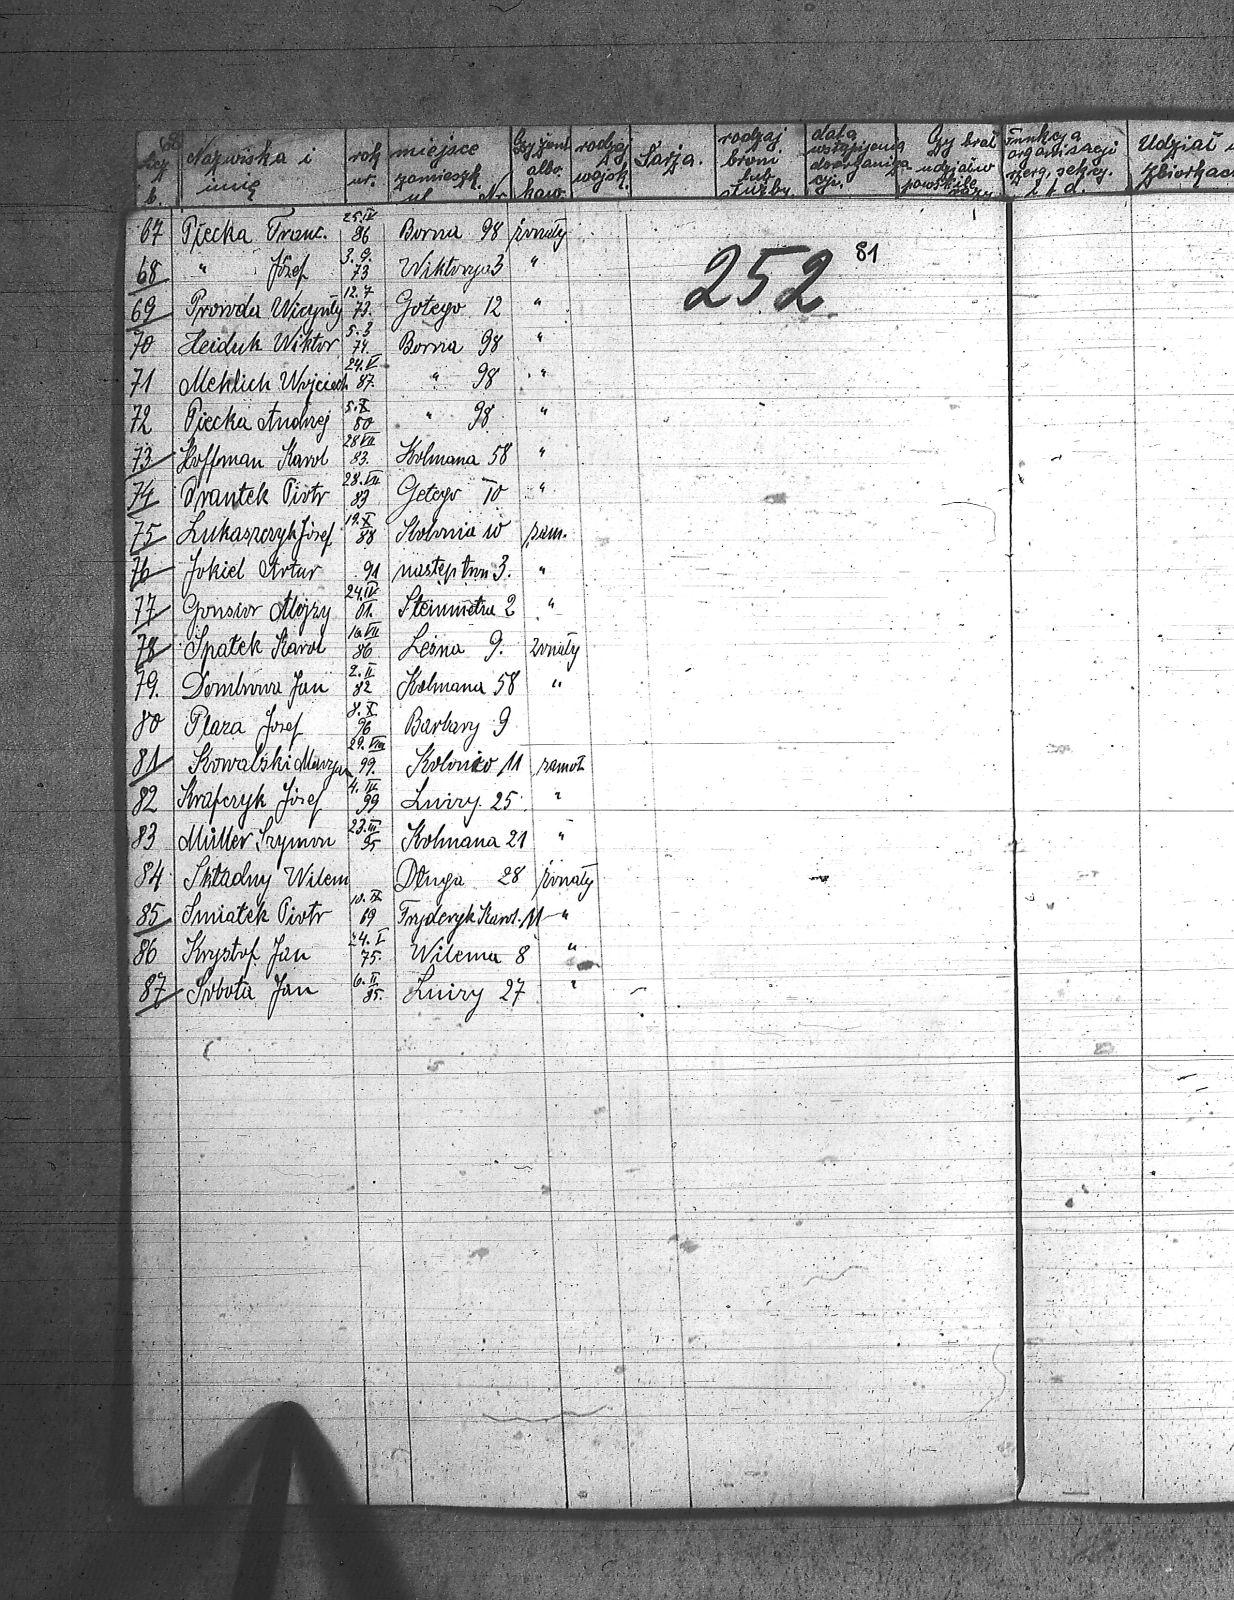 Nazwiska i imię rok ur. miejsce zamieszk. ul. Nr. Czy żont. albo kaw. rodzaj wojsk. Sarża. rodzaj broni lub służby. data wstąpienia do organizacji. Czy brał udział w powst. funkcja organisacji szerg. sekcy. i t.d. Udział w zbiórkach
67 Piecka Franc. 25.IV 96 Borna 98 żonaty
68 " Józef 3.9. 73 Wiktorya 3 "
69 Prowda Wicenty 12.7 73. Gotego 12 "
70 Heiduk Wiktor 5.3 74. Borna 98 "
71 Mehlich Wojciech 24.V 87. " 98 "
72 Piecka Andrzej 5.X 80 " 98 "
73 Hoffman Karol 28 VII 83. Kolmana 58 "
74 Frantek Piotr 28.VII 83 Getego 10 "
75 Łukaszczyk Józef 19.X 88 Kolonia 10 zam.
76 Jokiel Artur 91 następ tron 3. "
77 Gonsior Alojzy 24.IV 01. Steinmetra 2 "
78 Spałek Karol 16.VII 86 Leśna 9. żonaty
79. Dombrowa Jan 2.II 82 Kolmana 58 "
80 Plaza Józef 8.X 96 Barbary 9
81 Kowalski Maryan 29.VIII 99. Kolonio 11 samot
82 Krafczyk Józef 4.III 99 Luizy 25 "
83 Müller Szymon 23.III 95 Kolmana 21 "
84 Składny Wilem Długa 28 żonaty
85 Smiatek Piotr 10.IX 69 Fryderyk Karol. 11 "
86 Krystof Jan 24.V 75. Wilema 8 "
87 Sobota Jan 6.II 85. Luizy 27 "
252
81